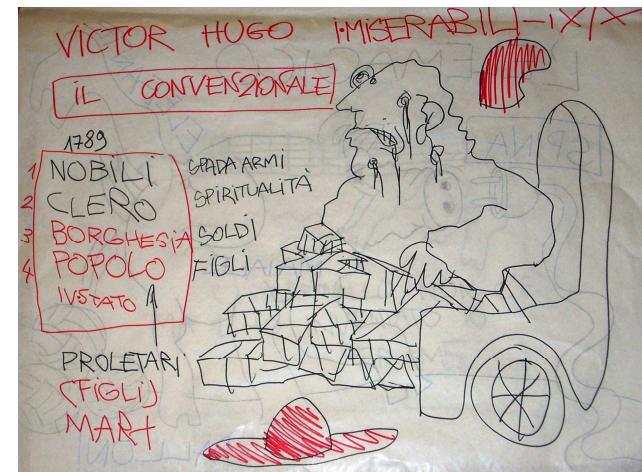 VICTOR HUGO I MISERABILI - IX/X
IL CONVENZIONALE
1789
1 NOBILI SPADA ARMI
2 CLERO SPIRITUALITÀ
3 BORGHESIA SOLDI
4 POPOLO FIGLI
IV STATO
PROLETARI
(FIGLI)